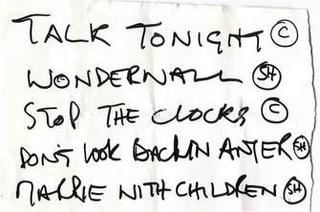 TALK TONIGHT C
WONDERWALL SH
STOP THE CLOCKS C
DON'T LOOK BACK IN ANGER SH
MARRIED WITH CHILDREN SH